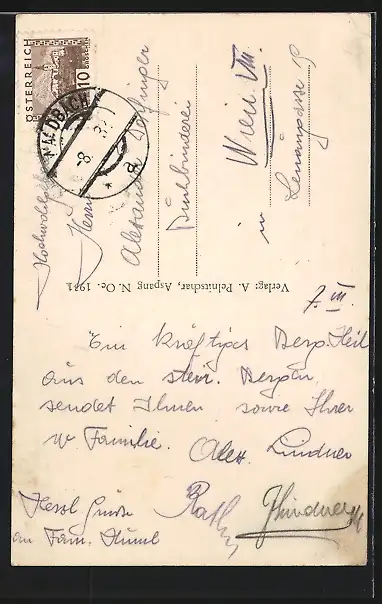 ÖSTERREICH
10
GROSCHEN
WALDBACH
-8.
a
Hochwohlgeb.
Herrn
Alexander
Buchbinderei
in Wien VIII.
Lenaugasse 19
Verlag: A. Pelnitschar, Aspang N. Oe. 1931
7. III.
Ein kräftiges Berg Heil
aus den steir. Bergen,
sendet Ihnen sowie Ihrer
w. Familie. Alex. Lindner
Herzl. Grüsse
an Fam.